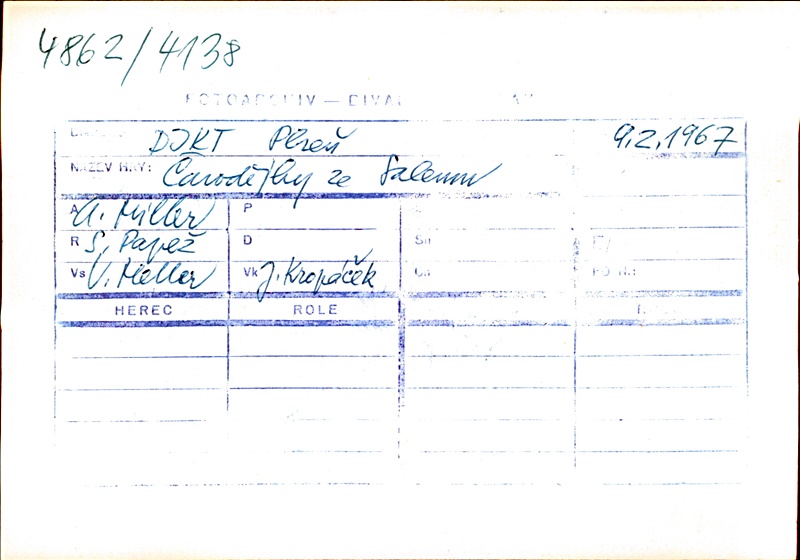 4862/4138
FOTOARCHIV — DIVA
DJKT Plzeň 9.2.1967
NÁZEV HRY: Čarodějky ze Salemu
A A. Miller P
R S. Papež D
Vs V. Heller Vk J. Kropáček
HEREC ROLE